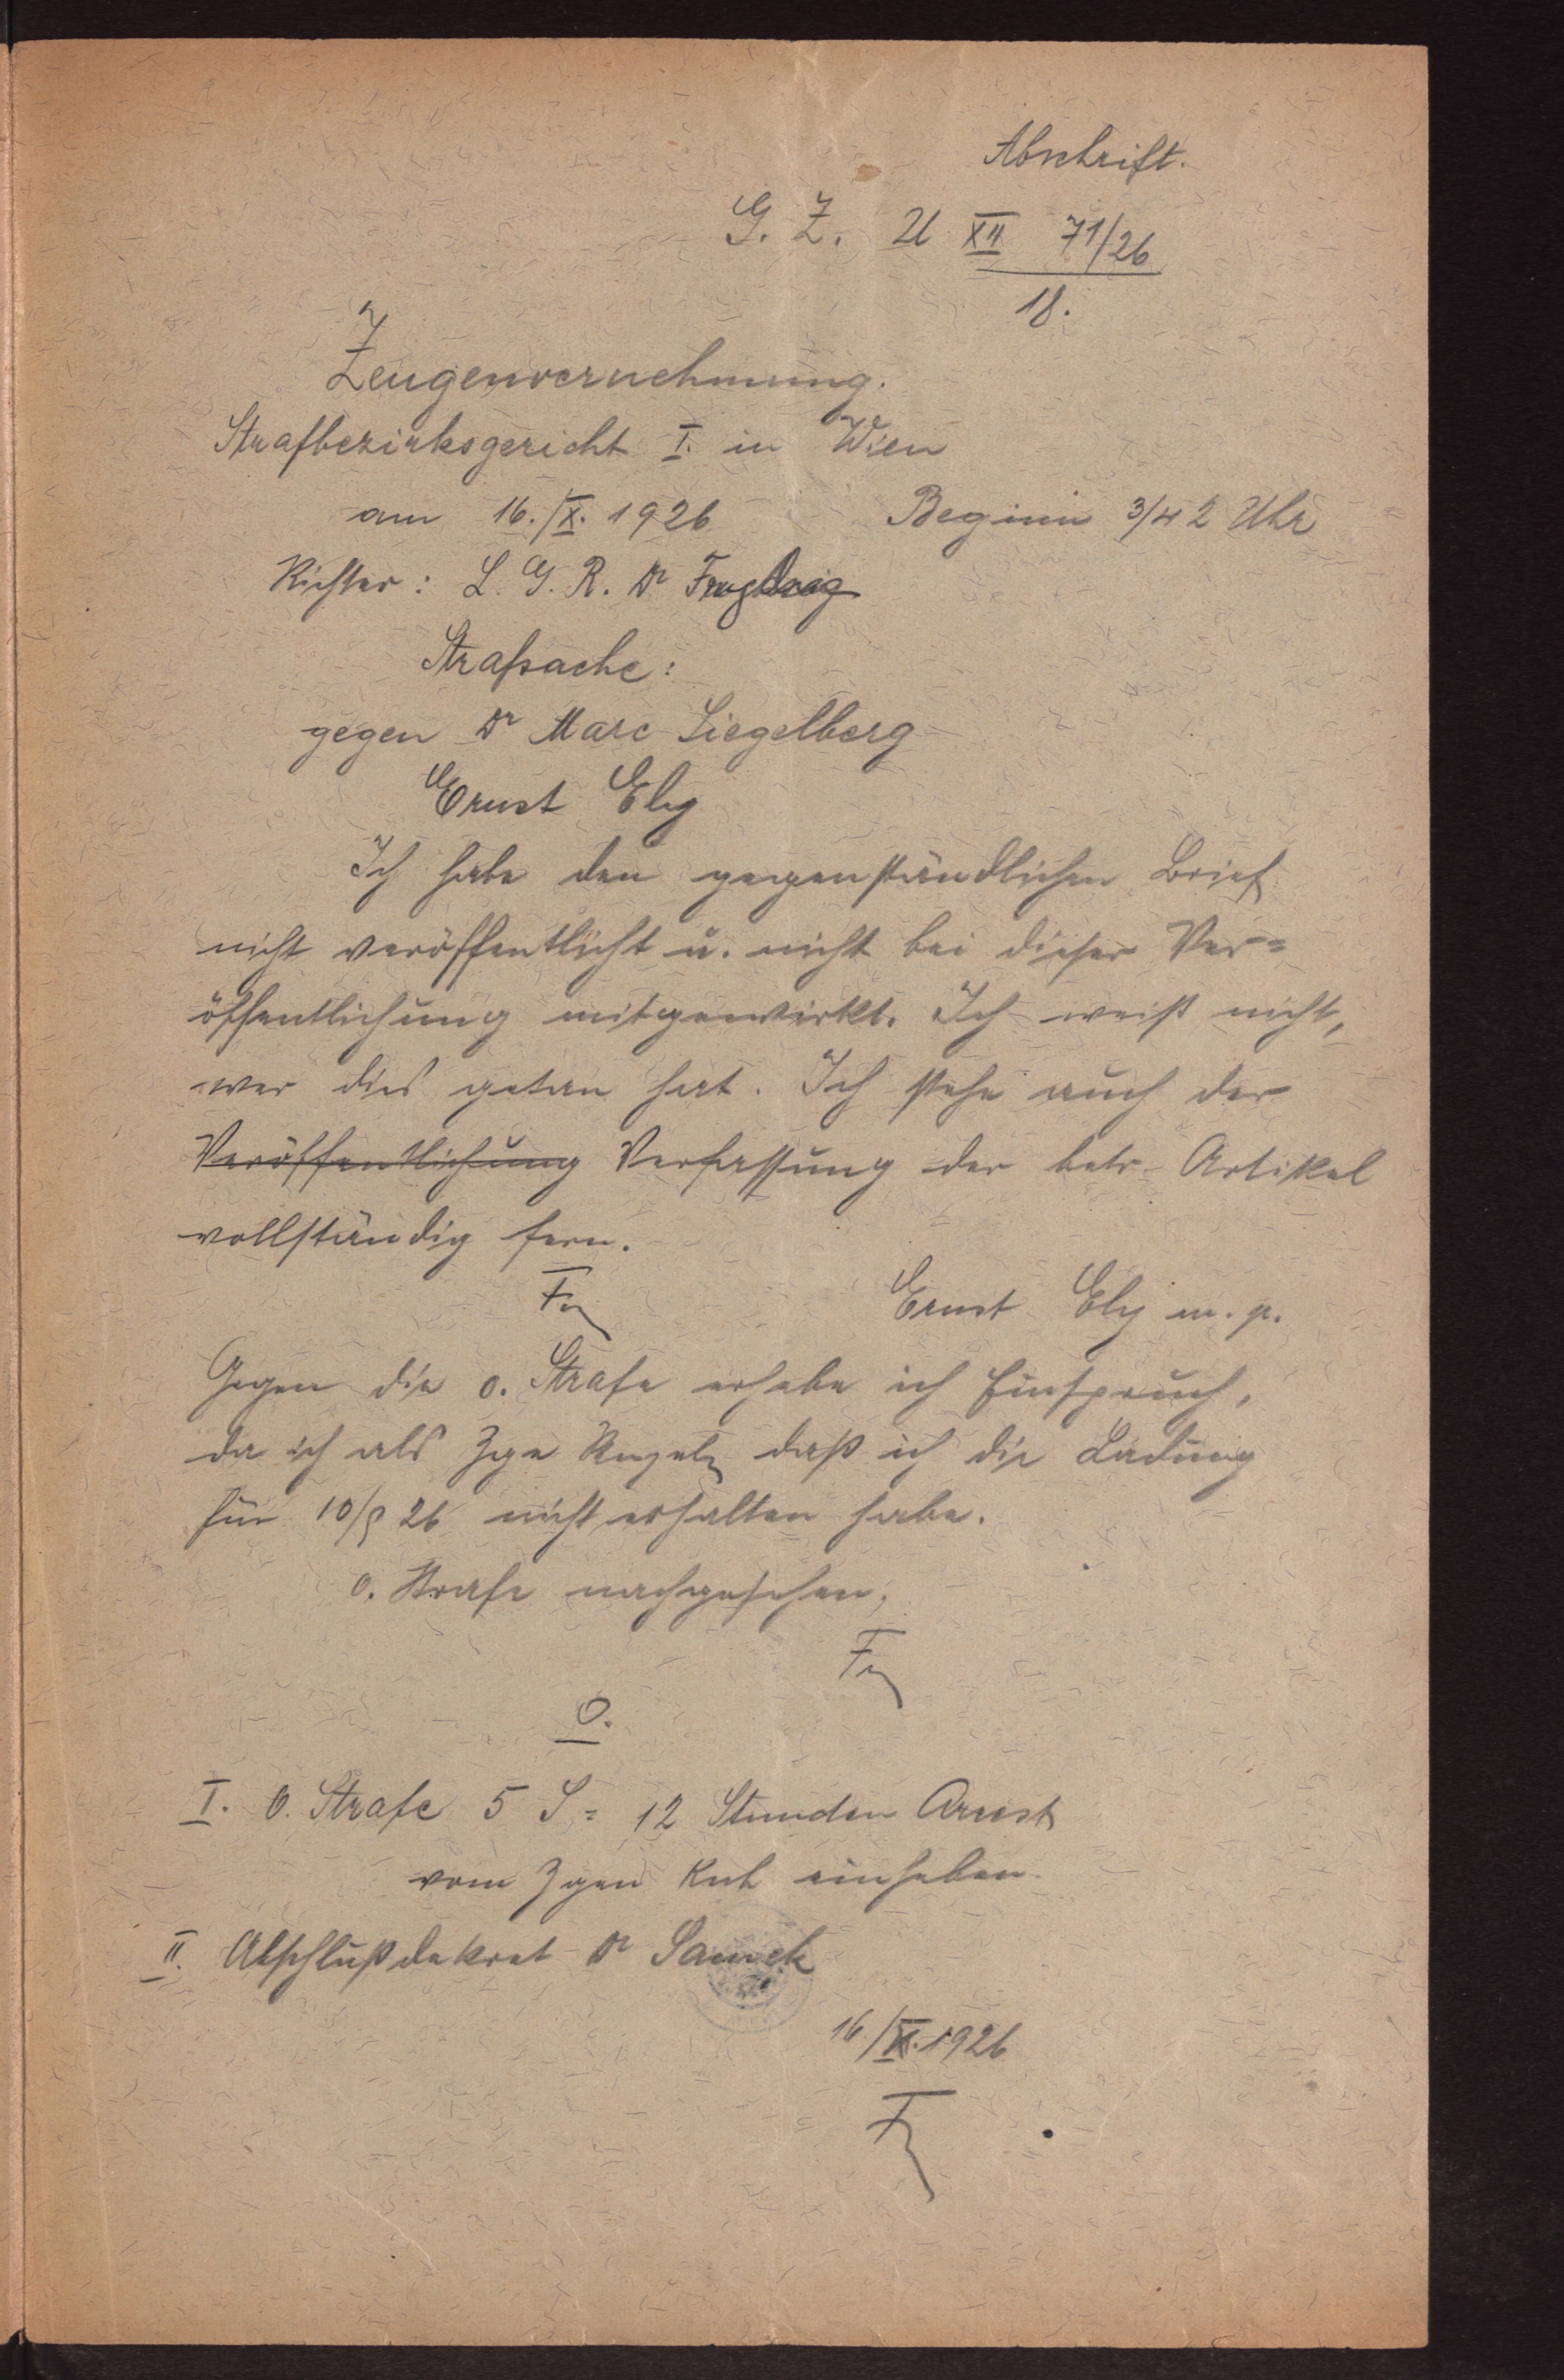 Abschrift.
G. Z. U XII 71/26
18.
Zeugenvernehmung.
Strafbezirksgericht I. in Wien
am 16./X. 1926 Beginn 3/4 2 Uhr
Richter: L. G. R. Dr
Strafsache:
gegen Dr Marc Siegelberg
Ernst Ely
Ich habe den gegenständlichen Brief
nicht veröffentlicht u. nicht bei dieser Ver=
öffentlichung mitgewirkt. Ich weiß nicht,
wer dies getan hat. Ich stehe auch der
Veröffentlichung Verfassung der betr. Artikel
vollständig fern.
Ernst Ely m. p.
Gegen die o. Strafe erhebe ich Einspruch,
da ich als Zge daß ich die Ladung
für 10/9 26 nicht erhalten habe.
o. Strafe nachgesehen.
O.
I. O. Strafe 5 S = 12 Stunden Arrest
vom Zgen einheben.
II. Abschlußdekret Dr Samek
16./X. 1926